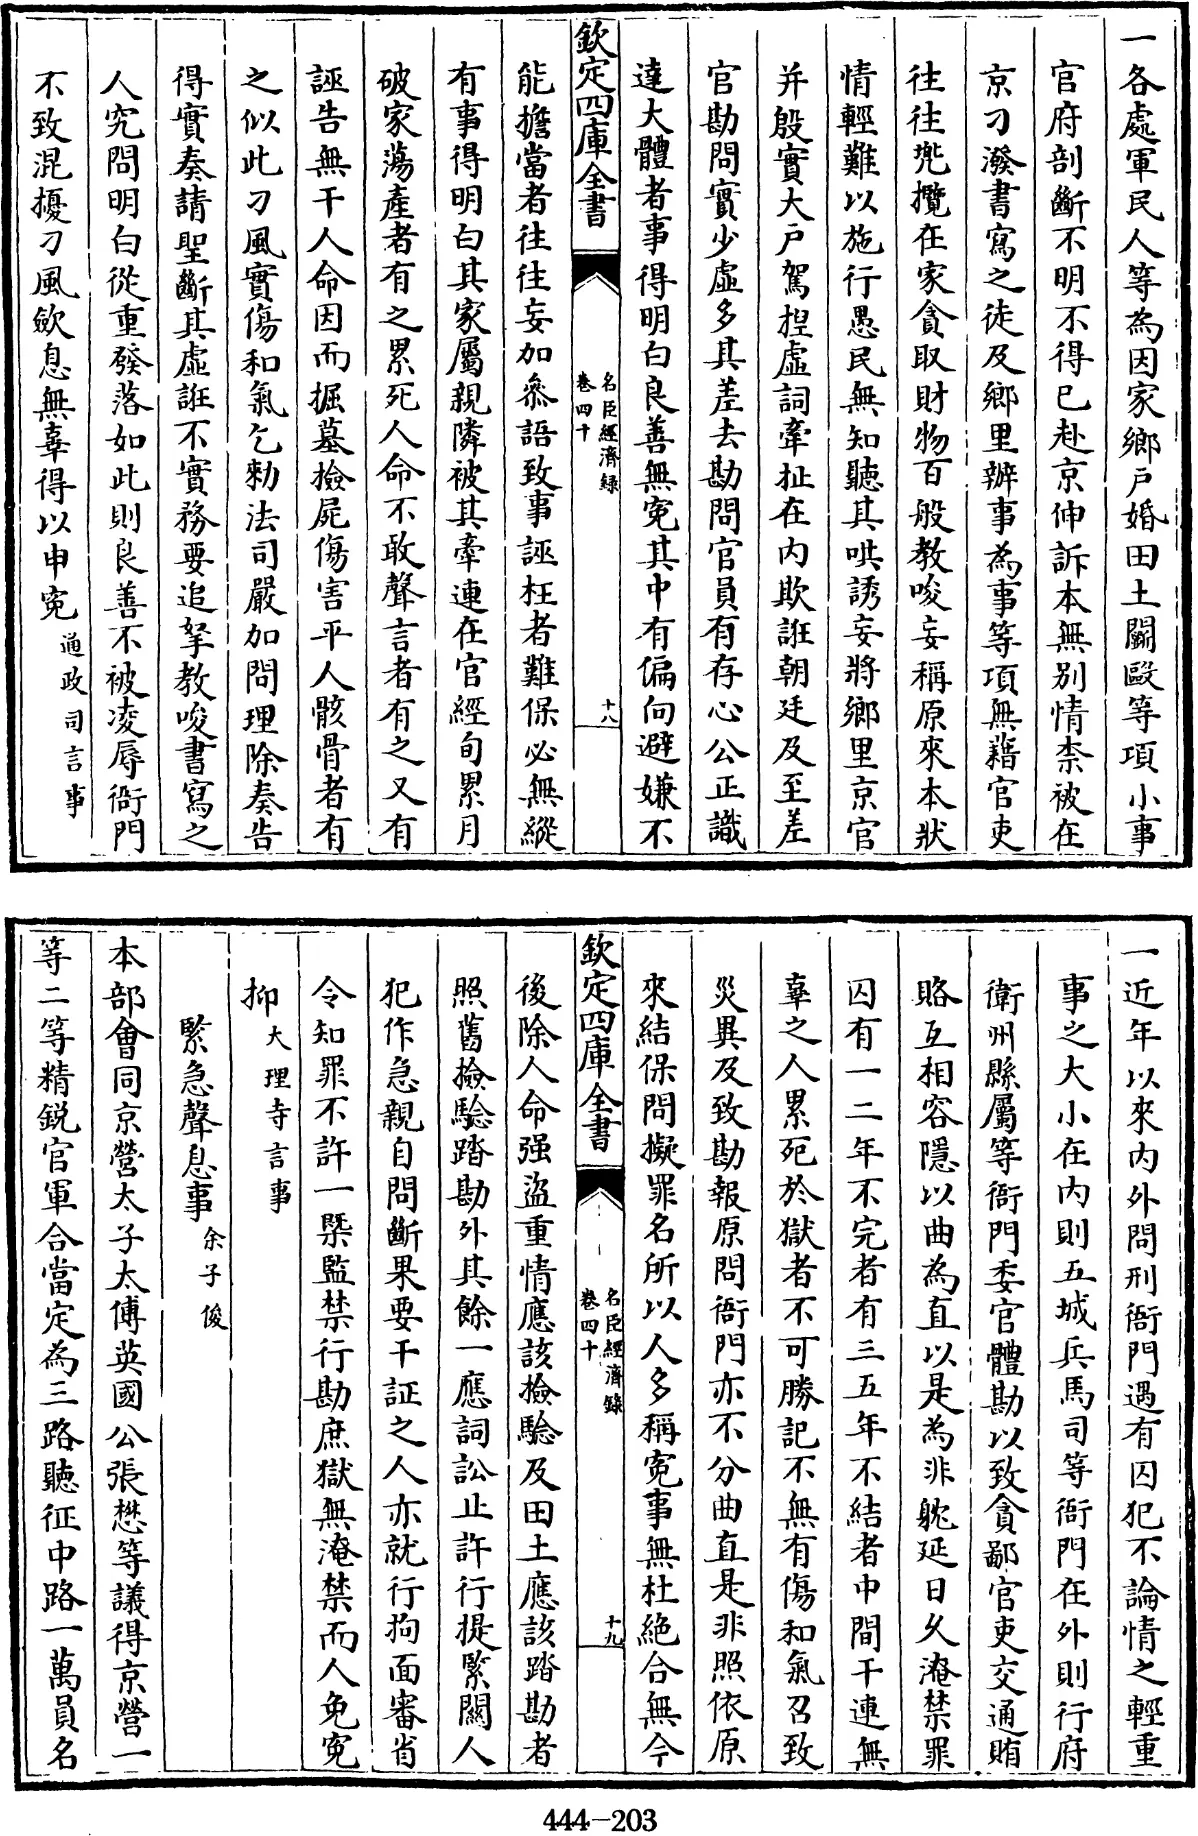 一各處軍民人等為因家鄉戶婚田土鬭毆等項小事
官府剖斷不明不得已赴京伸訴本無别情柰被在
京刁潑書寫之徒及鄉里辦事為事等項無藉官吏
往往兜攬在家貪取財物百般教唆妄稱原來本狀
情輕難以施行愚民無知聽其哄誘妄將鄉里京官
并殷實大戶駕揑虚詞牽扯在内欺誑朝廷及至差
官勘問實少虚多其差去勘問官員有存心公正識
達大體者事得明白良善無寃其中有偏向避嫌不
欽定四庫全書
名臣經濟録
卷四十
十八
能擔當者往往妄加叅語致事誣枉者難保必無縱
有事得明白其家屬親隣被其牽連在官經旬累月
破家蕩產者有之累死人命不敢聲言者有之又有
誣告無干人命因而掘墓撿屍傷害平人骸骨者有
之似此刁風實傷和氣乞勅法司嚴加問理除奏告
得實奏請聖斷其虚誑不實務要追拏教唆書寫之
人究問明白從重發落如此則良善不被凌辱衙門
不致混擾刁風歛息無辜得以申寃 通政司言事
一近年以來内外問刑衙門遇有囚犯不論情之輕重
事之大小在内則五城兵馬司等衙門在外則行府
衛州縣屬等衙門委官體勘以致貪鄙官吏交通賄
賂互相容隱以曲為直以是為非躭延日久淹禁罪
囚有一二年不完者有三五年不結者中間干連無
辜之人累死於獄者不可勝記不無有傷和氣召致
災異及致勘報原問衙門亦不分曲直是非照依原
來結保問擬罪名所以人多稱寃事無杜絶合無今
欽定四庫全書
名臣經濟錄
卷四十
十九
後除人命强盜重情應該撿驗及田土應該踏勘者
照舊撿驗踏勘外其餘一應詞訟止許行提緊關人
犯作急親自問斷果要干証之人亦就行拘面審省
令知罪不許一槩監禁行勘庶獄無淹禁而人免寃
抑 大理寺言事
緊急聲息事 余子俊
本部會同京營太子太傅英國公張懋等議得京營一
等二等精銳官軍合當定為三路聽征中路一萬員名
444-203